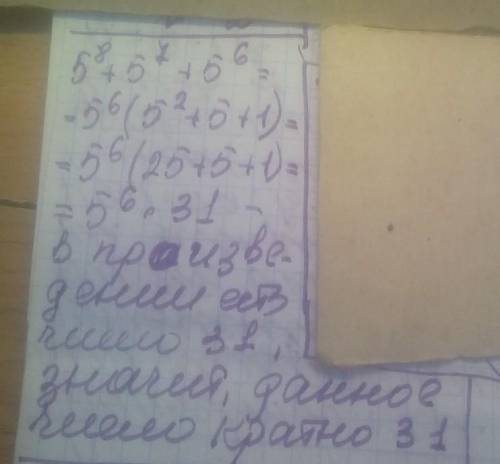 5⁸+5⁷+5⁶=
=5⁶(5²+5+1)=
=5⁶(25+5+1)=
=5⁶·31 –
в произве-
дении есть
число 31,
значит, данное
число кратно 31